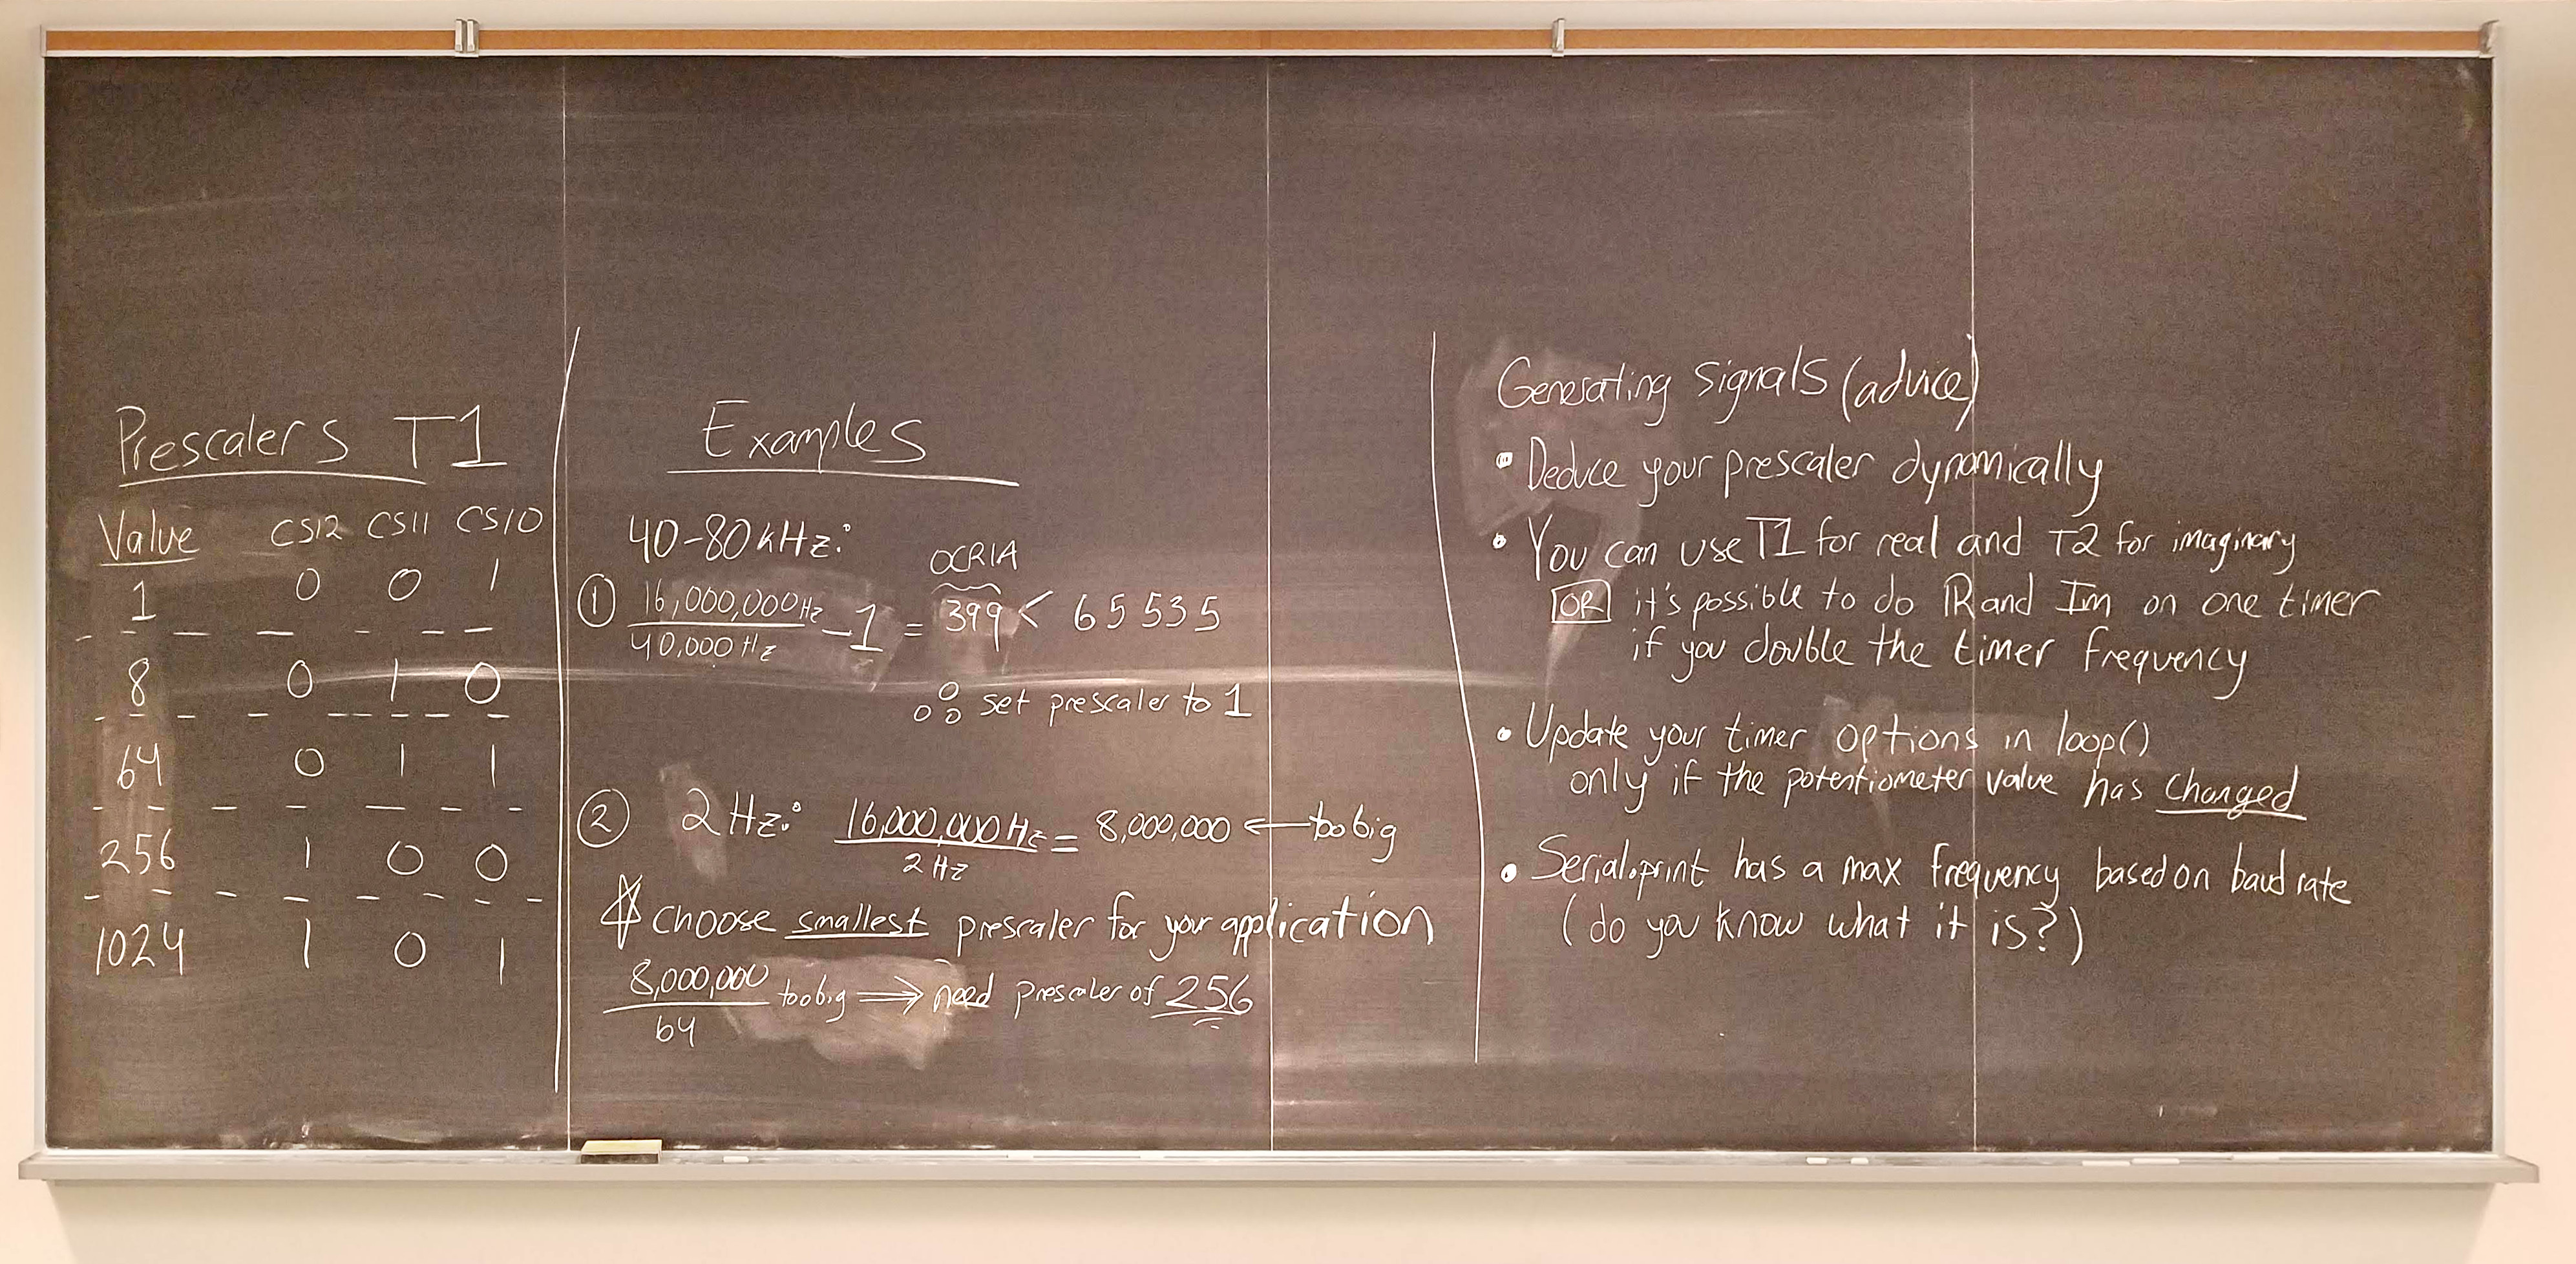 Prescalers T1
Value CS12 CS11 CS10
1 0 0 1
8 0 1 0
64 0 1 1
256 1 0 0
1024 1 0 1
Examples
40-80kHz:
OCR1A
① 16,000,000Hz / 40,000 Hz - 1 = 399 < 65535
∴ set prescaler to 1
② 2Hz: 16,000,000 Hz / 2 Hz = 8,000,000 ← too big
* choose smallest prescaler for your application
8,000,000 / 64 too big ⇒ need prescaler of 256
Generating signals (advice)
• Deduce your prescaler dynamically
• You can use T1 for real and T2 for imaginary
OR it's possible to do IR and Im on one timer
if you double the timer frequency
• Update your timer options in loop()
only if the potentiometer value has changed
• Serial.print has a max frequency based on baud rate
(do you know what it is?)